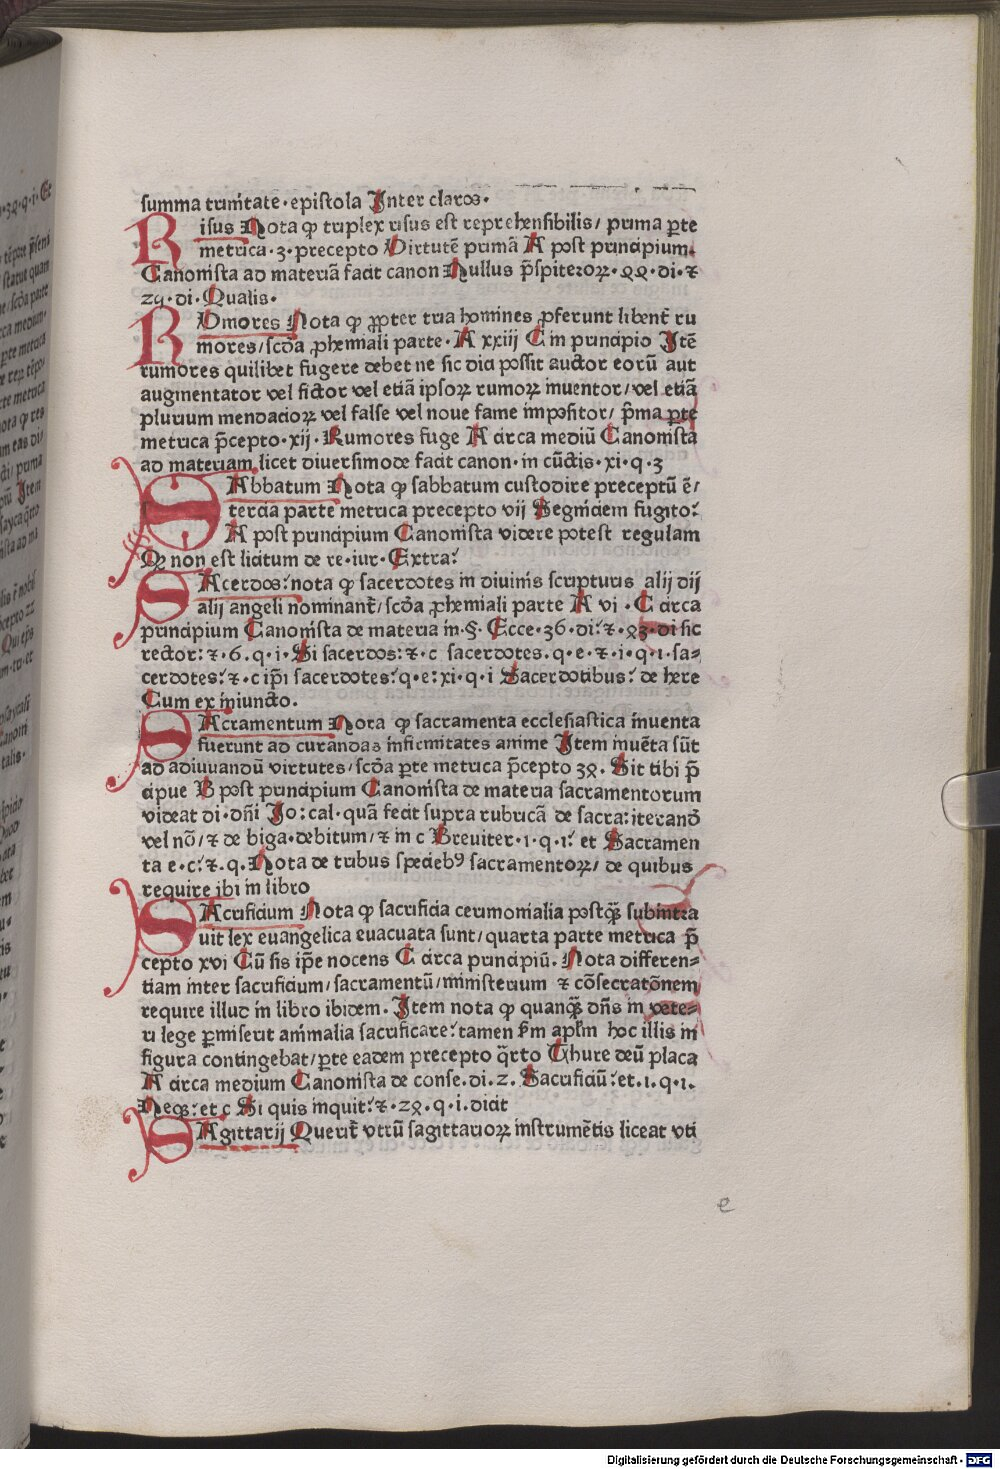 summa trinitate · epistola Inter claros ·
Risus Nota ꝙ triplex risus est reprehensibilis / prima ꝑte
metrica · 3 · precepto Virtutē primā A post principium ·
Canonista ad materiā facit canon Nullus p̄spiteroꝝ · 88 · di · ⁊
zq · di · Qualis ·
RVmores Nota ꝙ ꝓpter tria homines ꝓferunt libent̄ ru
mores / scd̄a ꝓhemiali parte · A xxiij C in principio Itē
rumores quilibet fugere debet ne sic dia possit auctor eorū aut
augmentator vel fictor vel etiā ipsoꝝ rumoꝝ inuentor / vel etiā
plurium mendacioꝝ vel false vel noue fame impositor / p̄ma ꝑte
metrica p̄cepto · xij · Rumores fuge A circa mediū Canonista
ad materiam licet diuersimode facit canon · in cūctis · xi · q · 3
SAbbatum Nota ꝙ sabbatum custodire preceptū ē /
tercia parte metrica precepto vij Segniciem fugito :
A post principium Canonista videre potest regulam
Qꝫ non est licitum de re · iur · Extra :
SAcerdos : nota ꝙ sacerdotes in diuinis scripturis alij dij
alij angeli nominant̄ / scd̄a ꝓhemiali parte A vi · C circa
principium Canonista de materia in · § · Ecce · 36 · di : ⁊ · 83 · di sic
rector : ⁊ · 6 · q · i · Si sacerdos : ⁊ · c sacerdotes · q · e · ⁊ · i · q · i · sa-
cerdotes : ⁊ · c ip̄i sacerdotes : q · e : xi · q · i Sacerdotibus : de here
Cum ex iniuncto ·
SAcramentum Nota ꝙ sacramenta ecclesiastica inuenta
fuerunt ad curandas infirmitates anime Item inuēta sūt
ad adiuuandū virtutes / scd̄a ꝑte metrica p̄cepto 38 · Sit tibi p̄
cipue B post principium Canonista de materia sacramentorum
videat di · dn̄i Jo : cal · quā fecit supra rubricā de sacra : iterand̄
vel nō / ⁊ de biga · debitum / ⁊ in c Breuiter · 1 · q · 1 : et Sacramen
ta e · c : ⁊ · q · Nota de tribus specieb⁹ sacramentoꝝ / de quibus
require ibi in libro
SAcrificium Nota ꝙ sacrificia cerimonialia postꝙ̄ subintra
uit lex euangelica euacuata sunt / quarta parte metrica p̄
cepto xvi Cū sis ip̄e nocens C circa principiū · Nota differen-
tiam inter sacrificium / sacramentū / ministerium ⁊ cōsecratōnem
require illud in libro ibidem · Item nota ꝙ quanꝙ̄ dn̄s in vete-
ri lege ꝑmiserit animalia sacrificare : tamen ẜm apl̄m hoc illis in
figura contingebat / ꝑte eadem precepto q̄rto Thure deū placa
A circa medium Canonista de conse · di · 2 · Sacrificiū : et · 1 · q · 1 ·
Neqꝫ : et c Si quis inquit : ⁊ · 28 · q · i · dicit
SAgittarij Querit̄ vtrū sagittarioꝝ instrumētis liceat vti
e
Digitalisierung gefördert durch die Deutsche Forschungsgemeinschaft · DFG